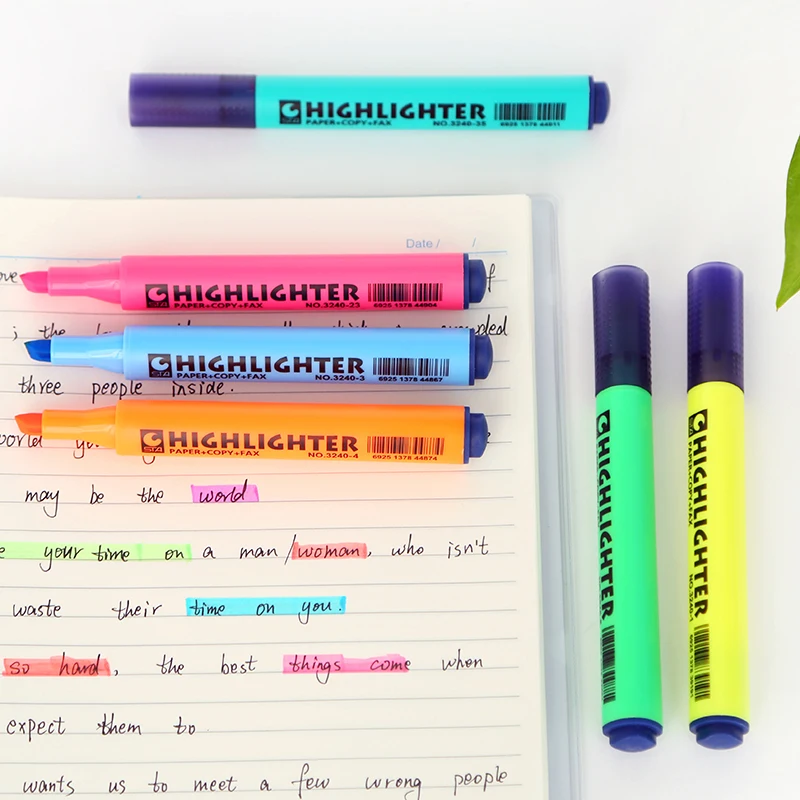 HIGHLIGHTER
STA PAPER+COPY+FAX NO.3240-35 6925 1378 44911
Date / /
HIGHLIGHTER
STA PAPER+COPY+FAX NO.3240-23 6925 1378 44904
; the
HIGHLIGHTER
STA PAPER+COPY+FAX NO.3240-3 6925 1378 44867
three people inside.
HIGHLIGHTER
STA PAPER+COPY+FAX NO.3240-4 6925 1378 44874
may be the world
your time on a man/woman, who isn't
waste their time on you.
so hard, the best things come when
expect them to
wants us to meet a few wrong people
HIGHLIGHTER
HIGHLIGHTER
PAPER+COPY+FAX